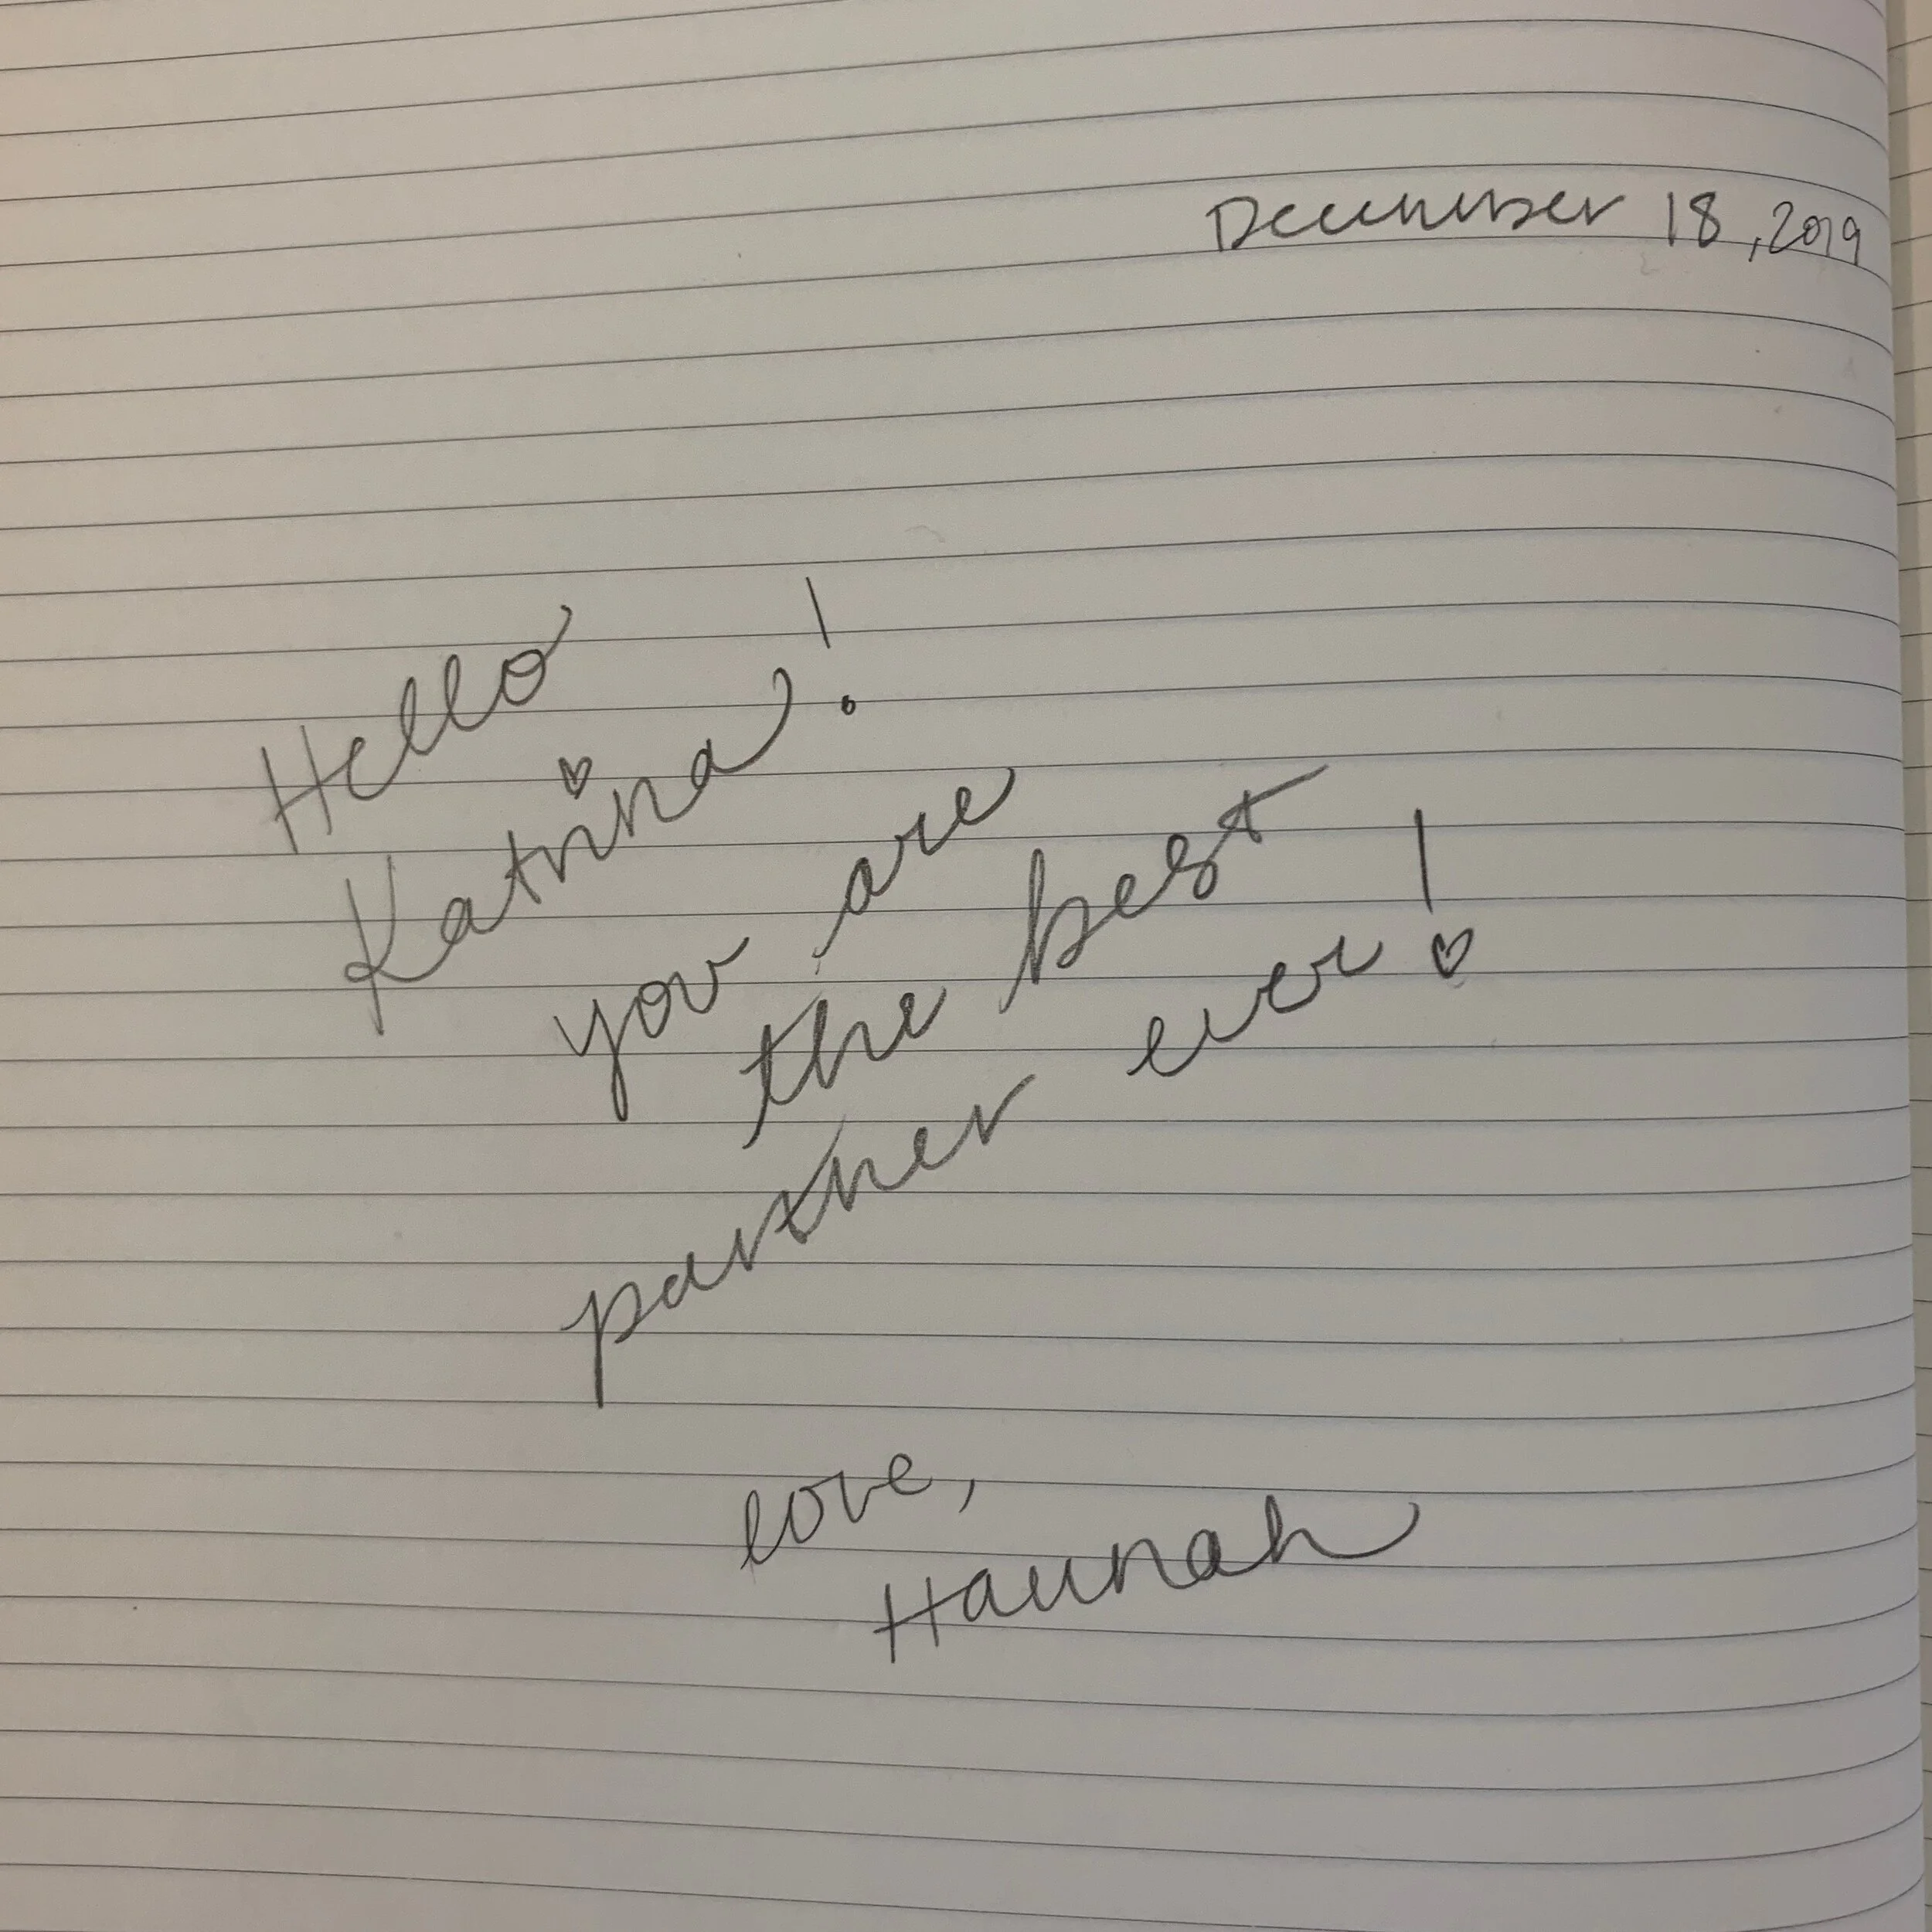 December 18, 2019
Hello
Katrina!
you are
the best
partner ever!
love,
Hannah